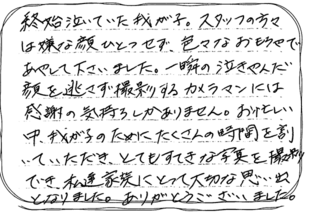 終始泣いていた我が子。スタッフの方々
は嫌な顔ひとつせず、色々なおもちゃで
あやして下さいました。一瞬の泣きやんだ
顔を逃さず撮影するカメラマンには
感謝の気持ちしかありません。お忙しい
中、我が子のためにたくさんの時間を割
いていただき、とてもすてきな写真を撮影
でき、私達家族にとって大切な思い出
となりました。ありがとうございました。